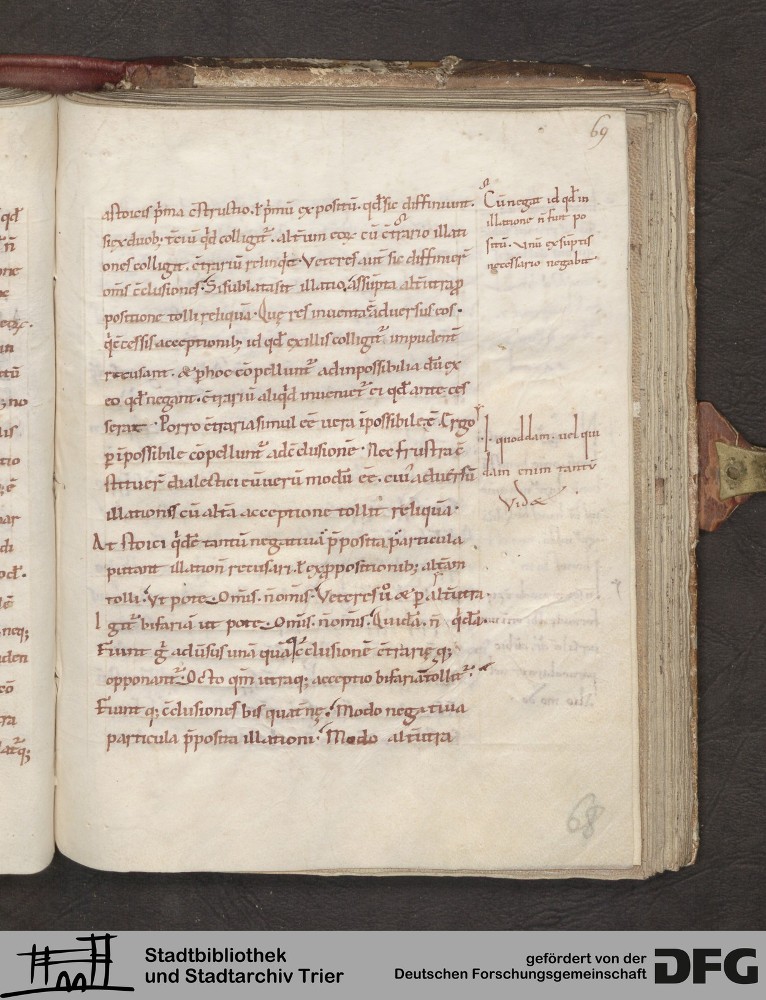 69
astoicis p̄ma c̄structio. ł p̄mū expositū. qđ sic diffiniunt.
si ex duob; t̄ciū qđ colligit᷑. alt̄um eoꝝ cū c̄trario illati
ones colligit. c̄trariū relinq̄t. Veteres aut̄ sic diffinier̄
om̄s c̄clusiones. Si sublata sit illatio, assūpta alt̄utra p̄
positione tolli reliquā. Quę res inventa ē adversus eos.
q̄ c̄cessis acceptionib; id qđ ex illis colligit᷑ impudent̄
recusant. & p hoc cōpellunt᷑ ad inpossibilia dū ex
eo qđ negant. c̄trariū aliq̄d invenitur ei qđ ante c̄ces
serat. Porro c̄traria simul eē vera īpossibile ē. Ergo
p īpossibile cōpellunt᷑ ad c̄clusionē. Nec frustra c̄
stituer̄ dialectici eū verū modū eē. cui᷒ adversū
illationis cū alt̄a acceptione tollit reliquā.
At stoici q̄dē tantū negativā p̄posita particula
putant illationē recusari. ł ex p̄positionib; alt̄am
tolli. Ut pote. Om̄is. ñ om̄is. Veteres v̊ & p alt̄utra.
Igit᷑ bifariā ut pote. Om̄is. ñ om̄is. Quidā. ñ q̄dā.
Fiunt ḡ adv̄sus unā quāq; c̄clusionē c̄trarię q;
opponant᷑. Octo qm̄ utraq; acceptio bifariā tollit᷑.
Fiunt q; c̄clusiones bis quat̄nę. Modo negativa
particula p̄posita illationi. Modo alt̄utra
Cū negat id qđ in
illatione ñ fuit po
sitū. Unū ex sūptis
necessario negabit
ł. quoddam. vel qui
dam enim tantū
Vidoe
68
Stadtbibliothek
und Stadtarchiv Trier
gefördert von der
Deutschen Forschungsgemeinschaft
DFG